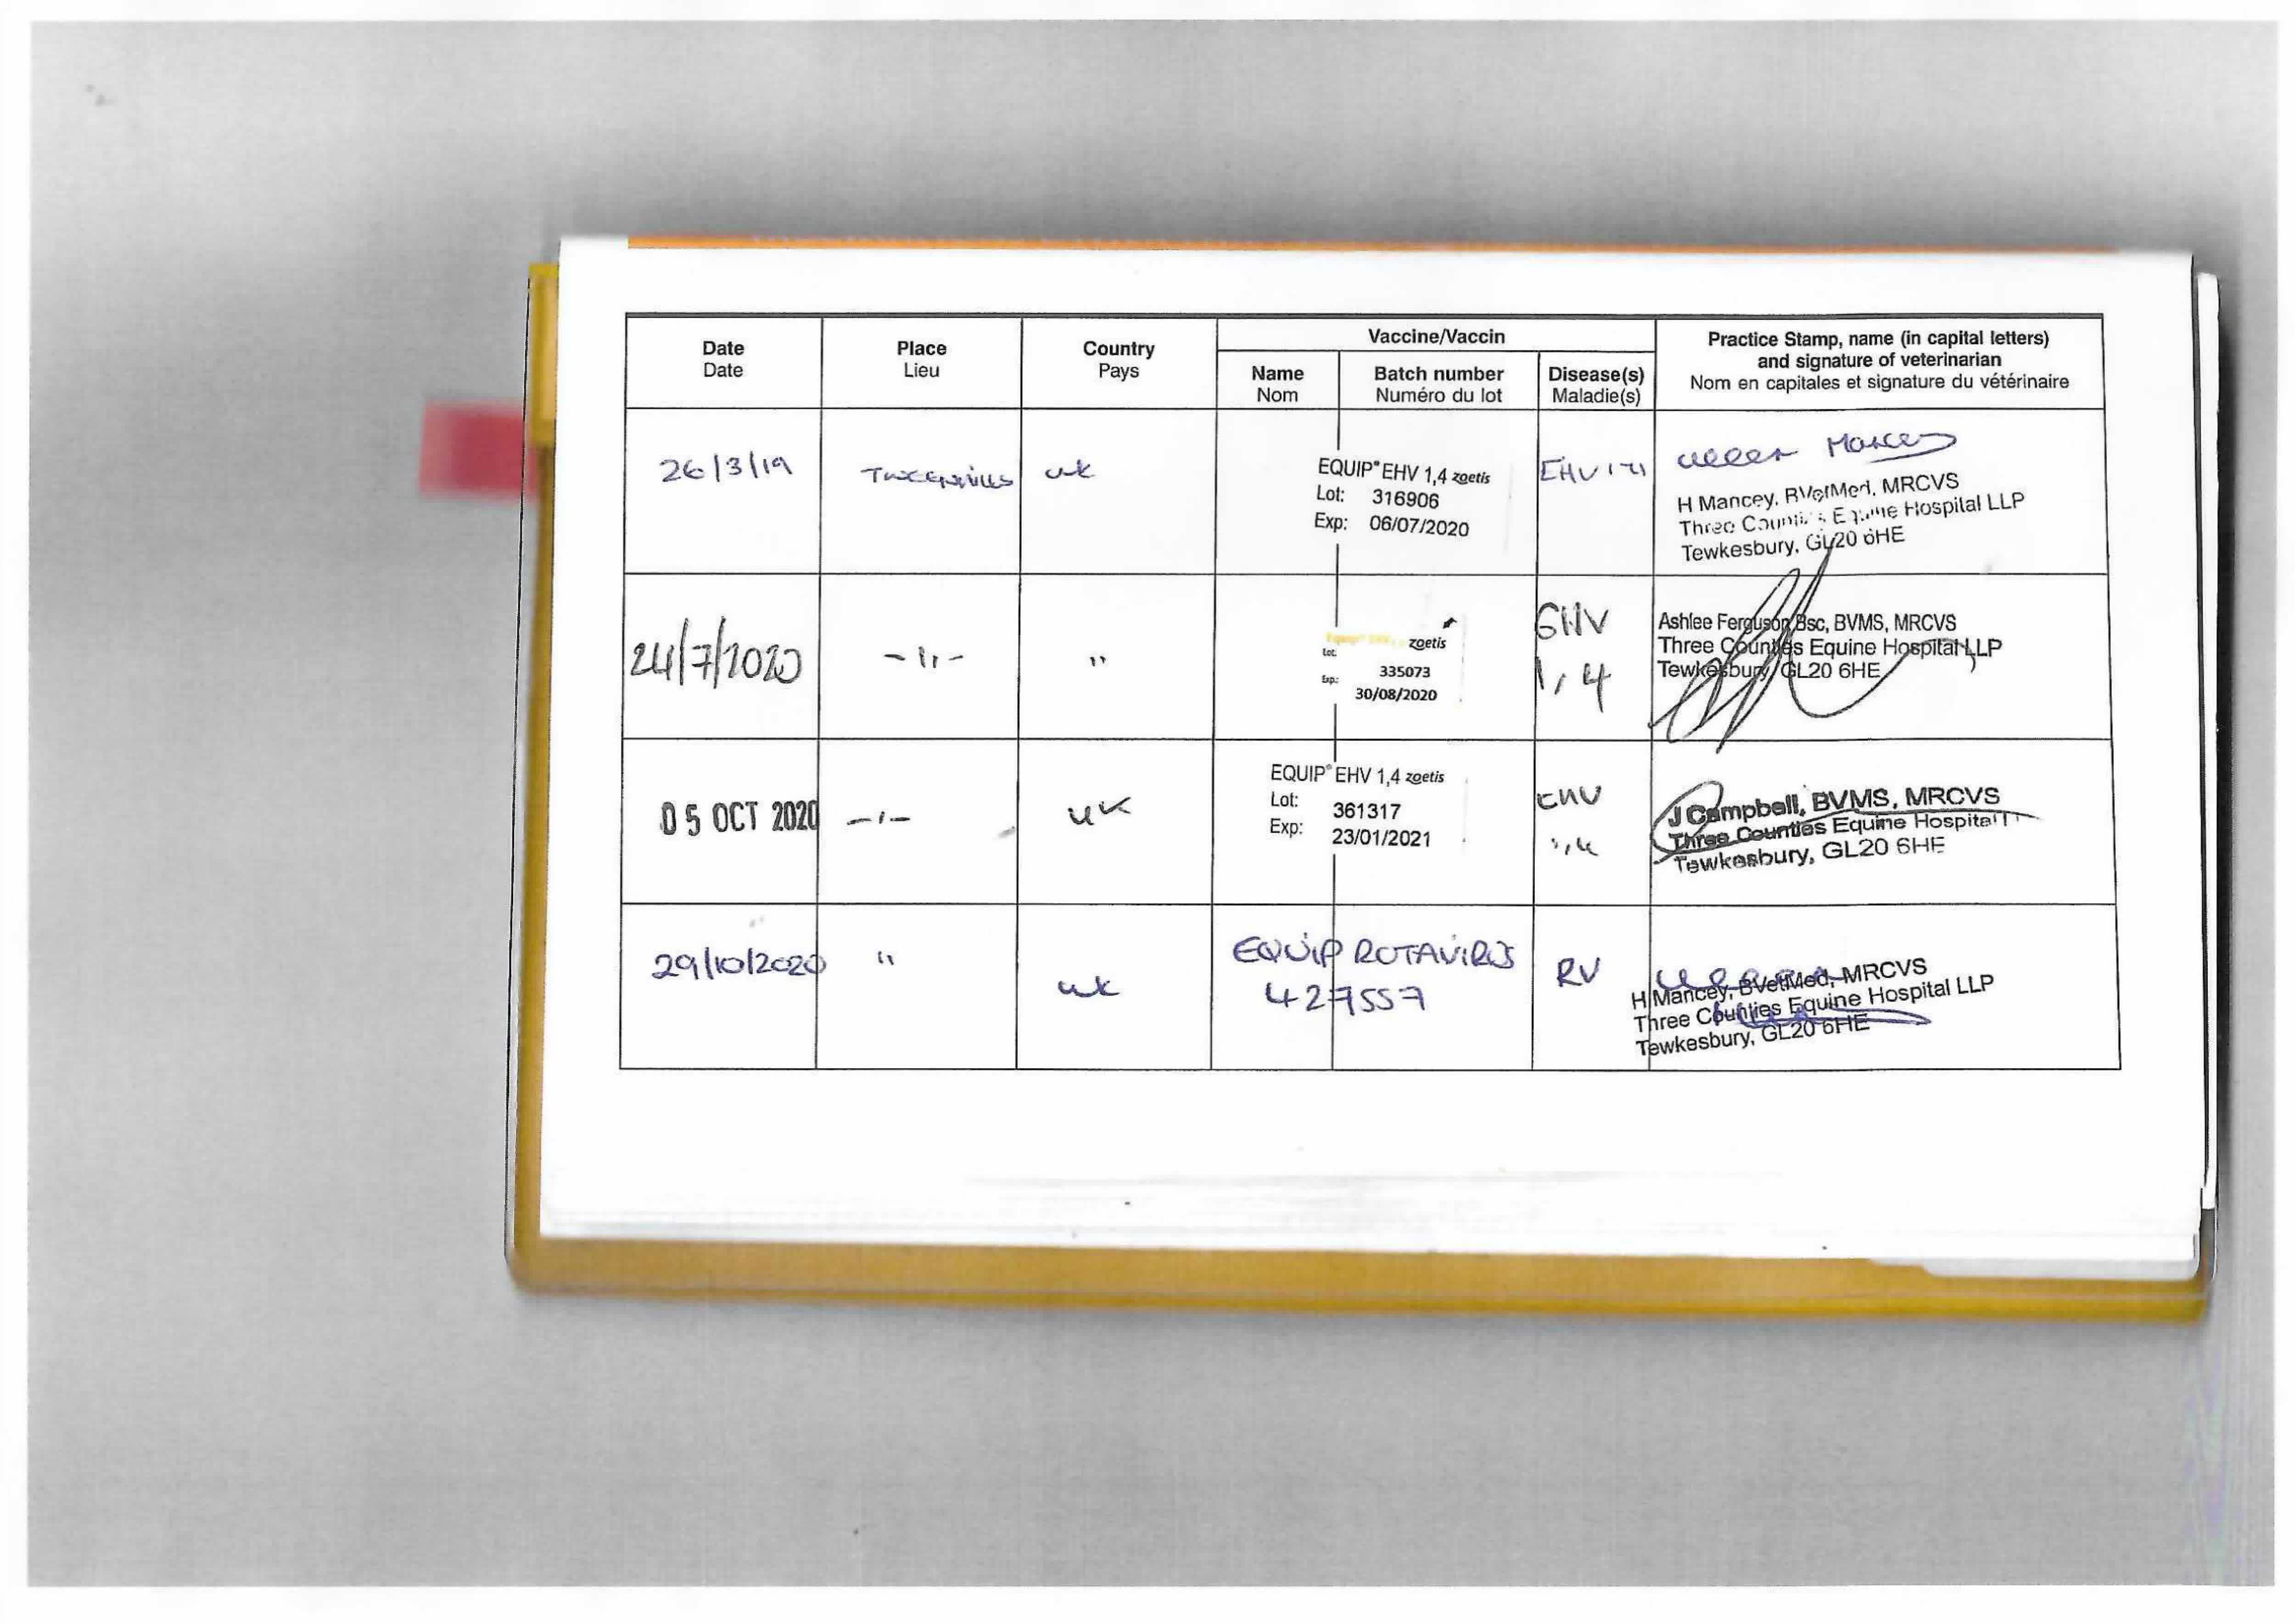 Date
Date
Place
Lieu
Country
Pays
Vaccine/Vaccin
Name
Nom
Batch number
Numéro du lot
Disease(s)
Maladie(s)
Practice Stamp, name (in capital letters)
and signature of veterinarian
Nom en capitales et signature du vétérinaire
26/3/19
UK
EQUIP® EHV 1,4 zoetis
Lot: 316906
Exp: 06/07/2020
EHV
Mancey
H Mancey, BVetMed, MRCVS
Three Counties Equine Hospital LLP
Tewkesbury, GL20 6HE
24/7/2020
-11-
"
Equip® EHV zoetis
Lot:
335073
Exp:
30/08/2020
EHV
1,4
Ashlee Ferguson Bsc, BVMS, MRCVS
Three Counties Equine Hospital LLP
Tewkesbury GL20 6HE
05 OCT 2020
-1-
UK
EQUIP® EHV 1,4 zoetis
Lot: 361317
Exp: 23/01/2021
EHV
1,4
J Campbell, BVMS, MRCVS
Three Counties Equine Hospital
Tewkesbury, GL20 6HE
29/10/2020
"
UK
EQUIP ROTAVIRUS
427557
RV
H Mancey, BVetMed, MRCVS
Three Counties Equine Hospital LLP
Tewkesbury, GL20 6HE